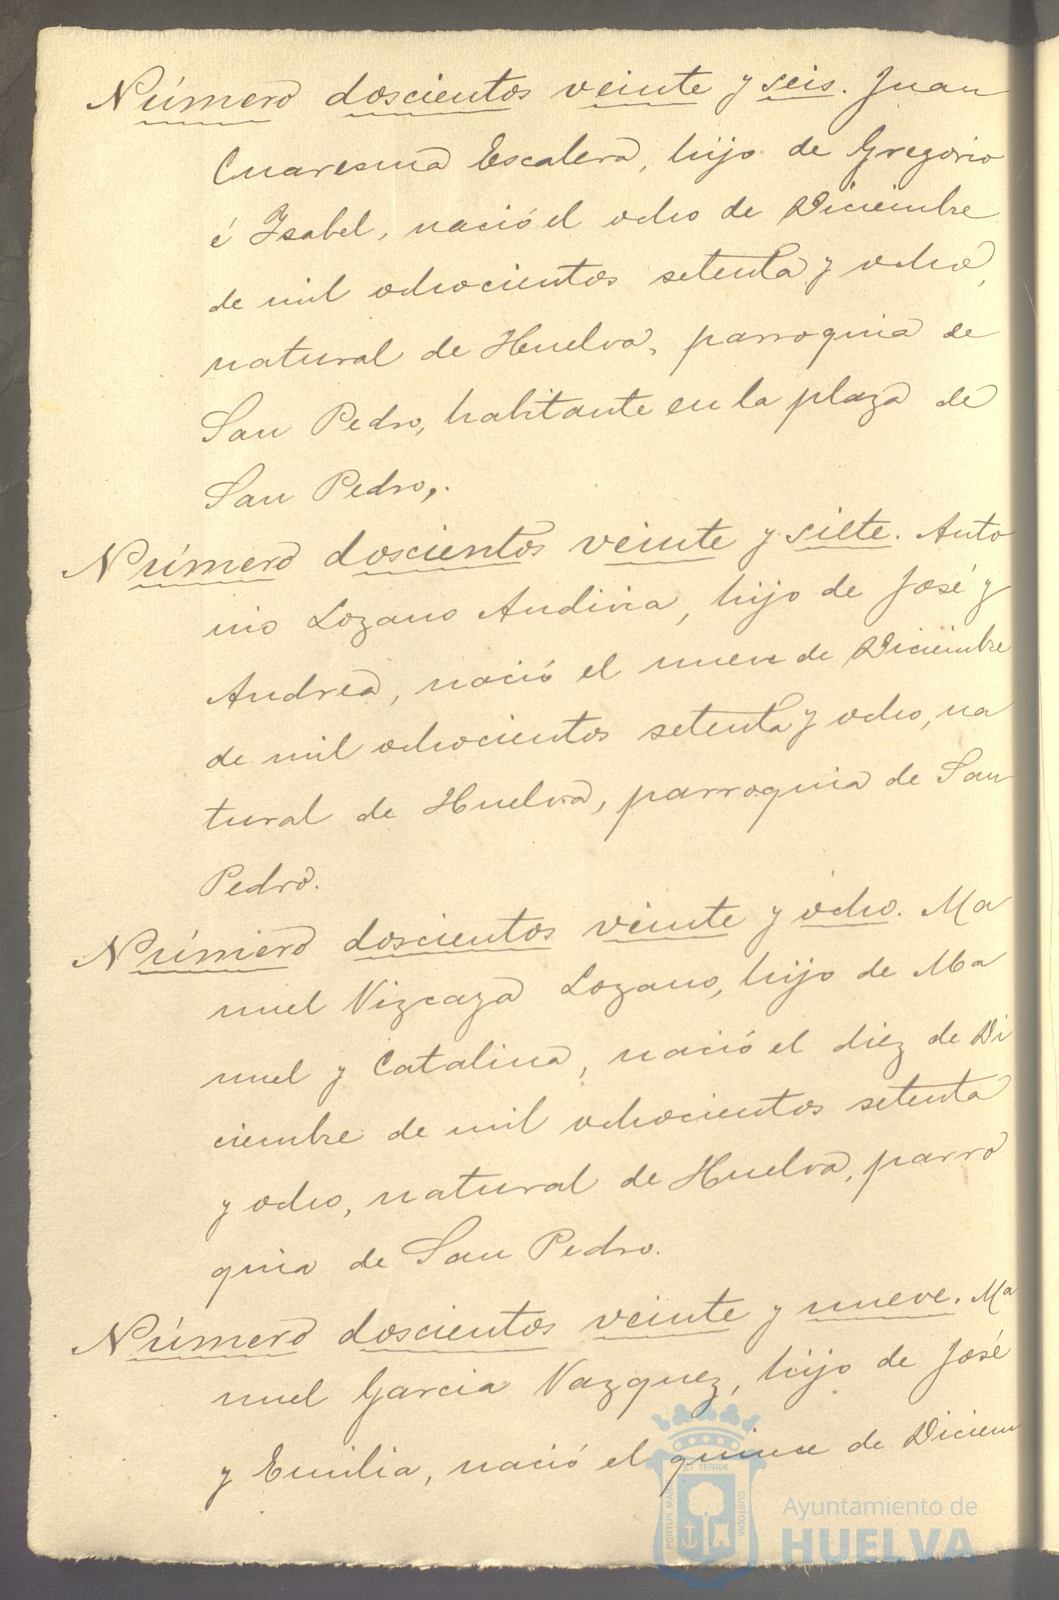 Número doscientos veinte y seis. Juan
Cuaresma Escalera, hijo de Gregorio
é Isabel, nació el ocho de Diciembre
de mil ochocientos setenta y ocho,
natural de Huelva, parroquia de
San Pedro, habitante en la plaza de
San Pedro,.
Número doscientos veinte y siete. Anto
nio Lozano Andivia, hijo de José y
Andrea, nació el nueve de Diciembre
de mil ochocientos setenta y ocho, na
tural de Huelva, parroquia de San
Pedro.
Número doscientos veinte y ocho. Ma
nuel Vizcaya Lozano, hijo de Ma
nuel y Catalina, nació el diez de Di
ciembre de mil ochocientos setenta
y ocho, natural de Huelva, parro
quia de San Pedro.
Número doscientos veinte y nueve. Ma
nuel Garcia Vazquez, hijo de José
y Emilia, nació el quince de Diciem
ET TERRÆ
PORTUS MARIS
CUSTODIA
Ayuntamiento de
HUELVA